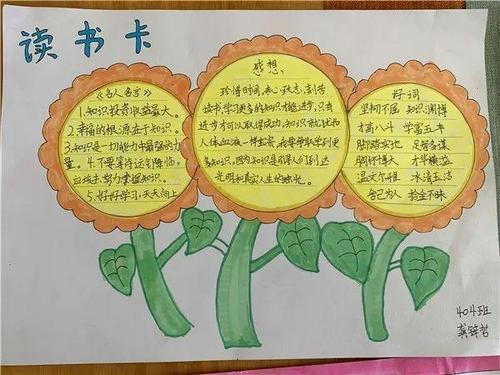 读书卡
《名人名言》
1.知识投资收益最大。
2.幸福的根源在于知识。
3.知识是一切能力中最强的力
量。4.不要等待运气降临。
应该去努力掌握知识。
5.好好学习,天天向上
感想
珍惜时间,
读书,学习更多的知识才能进步,只有
进步才可以取得成功,知识就犹如
人体血液一样宝贵,我要争取学到更
多知识,因为知识是引导人们到达
光明和真实人生的烛光。
好词
坚韧不屈 知识渊博
才高八斗 学富五车
脚踏实地 足智多谋
胸怀博大 才华横溢
温文尔雅 冰清玉洁
舍己为人 拾金不昧
404班